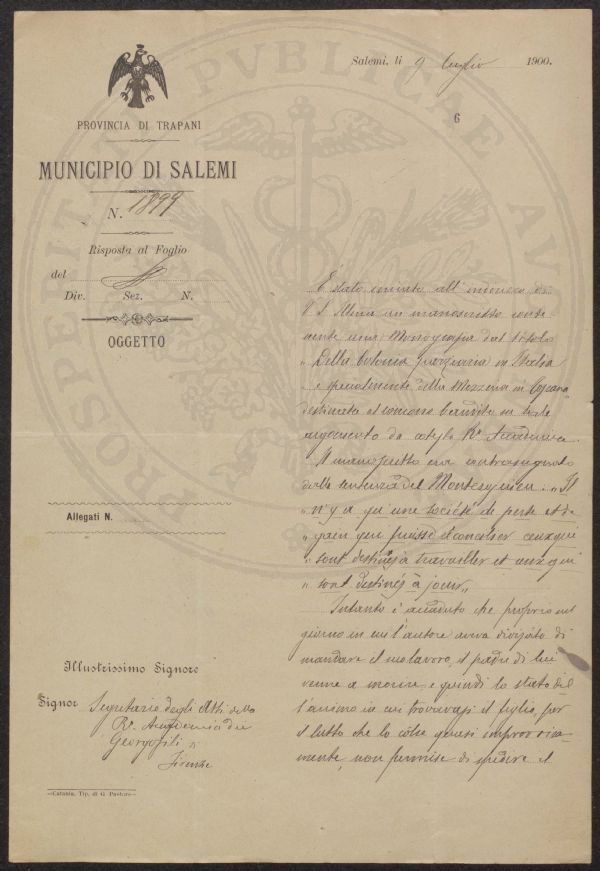 PROSPERITATI PUBLICAE AU
Salemi, li 9 luglio 1900.
6
PROVINCIA DI TRAPANI
MUNICIPIO DI SALEMI
N. 1899
Risposta al Foglio
del
Div. Sez. N.
OGGETTO
Allegati N.
Illustrissimo Signore
Signor Segretario degli Atti della
Re. Accademia dei
Georgofili
Firenze
Catania, Tip. di G. Pastore
È stato inviato all'indirizzo di
V. S. Illma un manoscritto conte-
nente una Monografia dal titolo
„ Della Colonia parziaria in Italia
„ e specialmente della Mezzeria in Toscana"
destinata al concorso bandito su tale
argomento da cotesta Re. Accademia.
Il manoscritto era contrassegnato
dalla sentenza del Montesquieu: „ Il
„ n'y a qu'une société de perte et de
„ gaen que puisse réconcilier ceux qui
„ sont destinés à travailler et ceux qui
„ sont destinés à jouir„
Intanto è accaduto che proprio nel
giorno in cui l'autore aveva divisato di
mandare il suo lavoro, il padre di lui
venne a morire, e quindi lo stato del
l'animo in cui trovavasi il figlio, per
il lutto che lo colse quasi improvvisa-
mente, non permise di spedire il